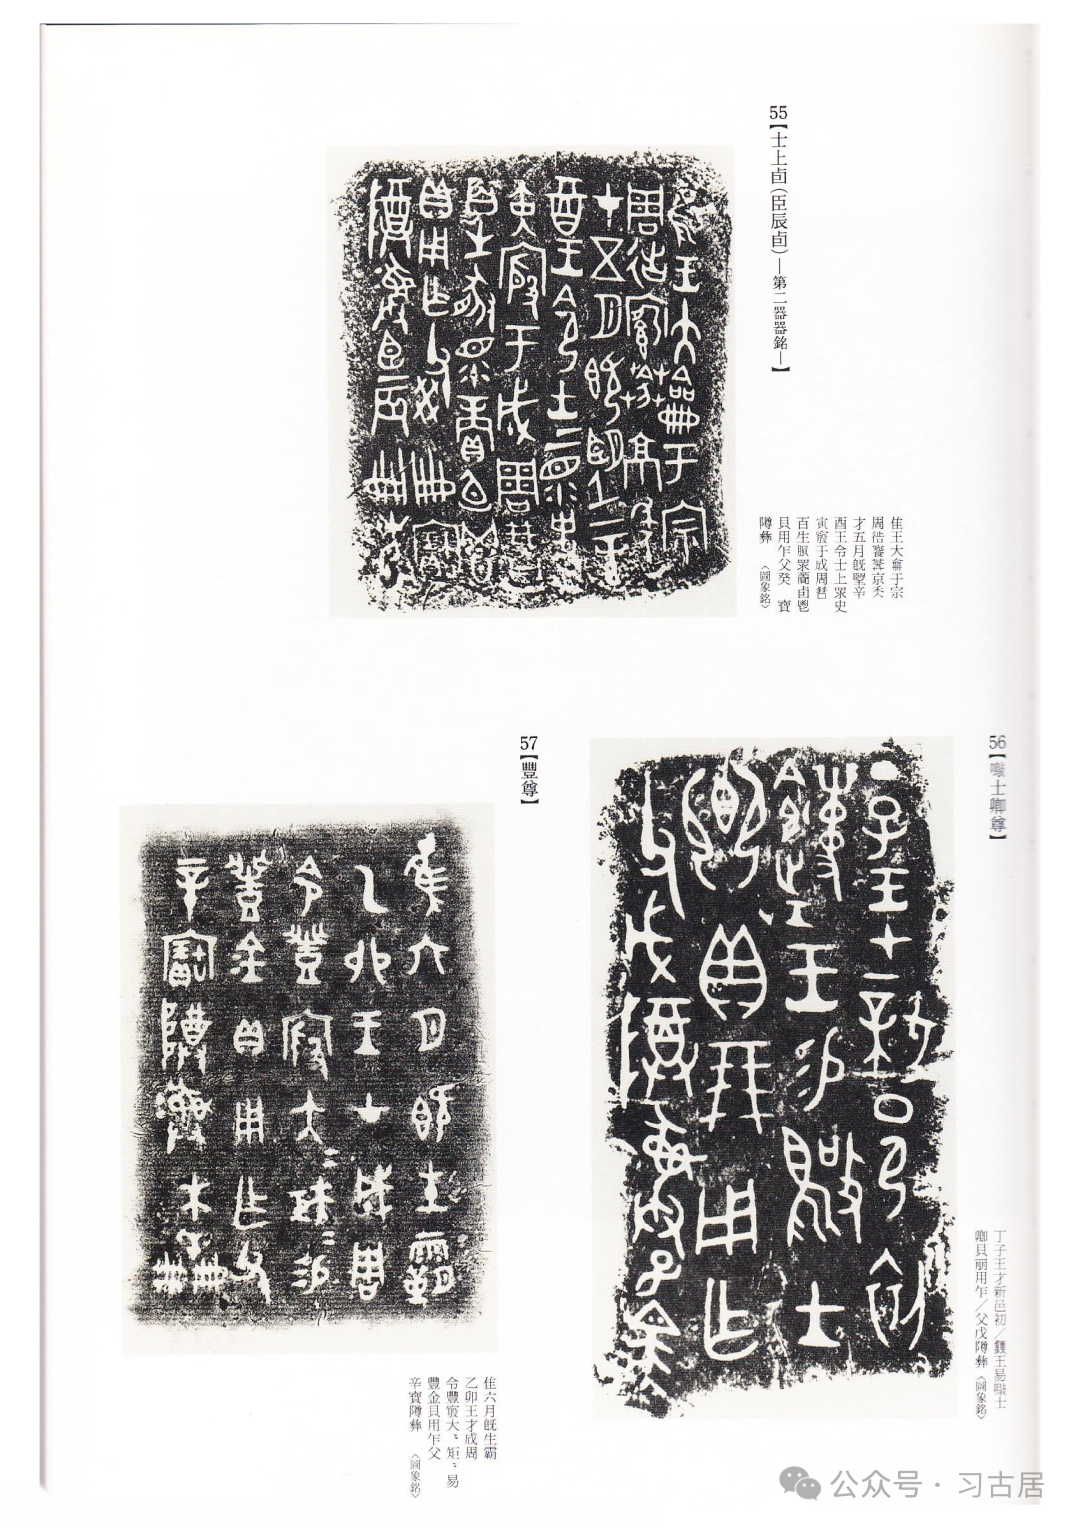 55【士上卣（臣辰卣）—第二器器銘—】
隹王大龠于宗
周𢓊䬛𦱶京年
才五月旣朢辛
酉王令士上眔史
寅𡪈于成周
百生豚眔卣
貝用乍父癸　寶
隣彝　〈圖象銘〉
56【士卿尊】
丁子王才新邑初／王易士
卿貝朋用乍／父戊隣彝〈圖象銘〉
57【豐尊】
隹六月旣生霸
乙卯王才成周
令豐𡪈大〻矩〻易
豐金貝用乍父
辛寶隣彝　〈圖象銘〉
公众号·习古居